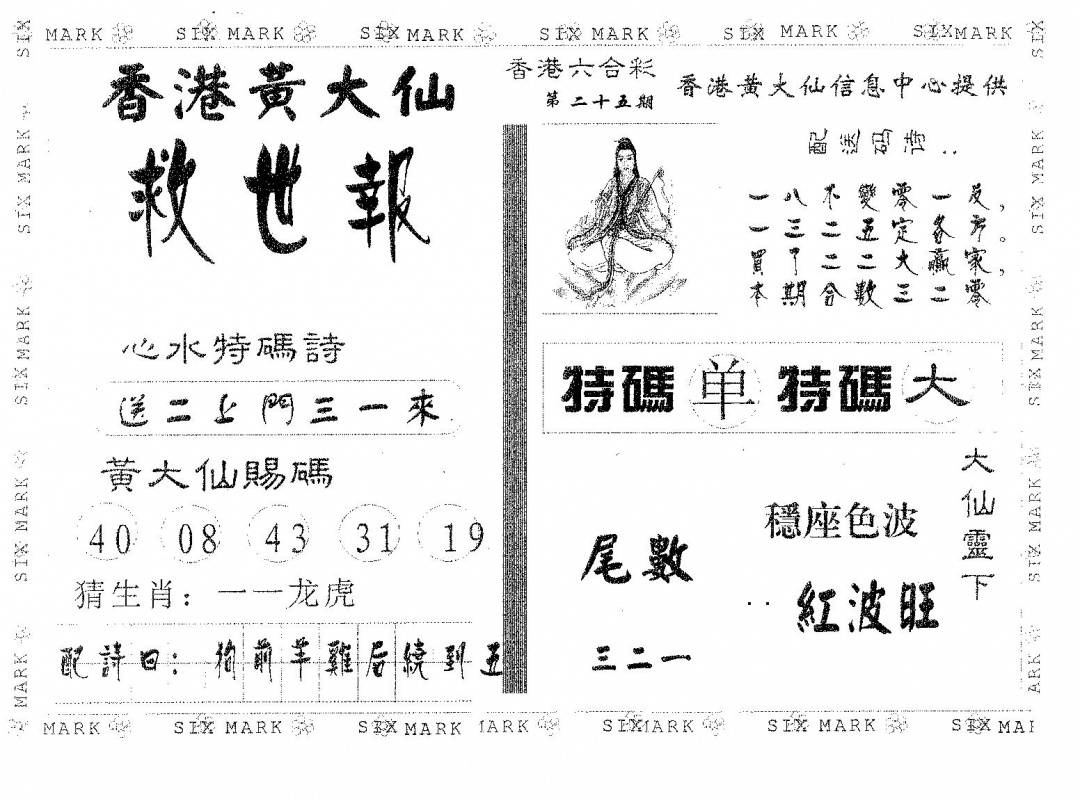 SIX MARK SIX MARK SIX MARK SIX MARK SIX MARK SIX MARK
香港黃大仙
救世報
心水特碼詩
送二上門三一來
黃大仙賜碼
40 08 43 31 19
猜生肖：一一龙虎
配詩曰：狗前羊雞后繞到五
香港六合彩
第二十五期
香港黄大仙信息中心提供
配送码诗：
一八不變零一反，
一三二五定各方。
買了二二大贏家，
本期合數三二零
特碼单 特碼大
尾數
三二一
穩座色波
紅波旺
大仙靈下
SIX MARK SIX MARK SIX MARK SIX MARK
SIX MARK SIX MARK SIX MARK ARK
MARK SIX MARK SIX MARK IARK SIXIARK SIX MARK SIX MAI